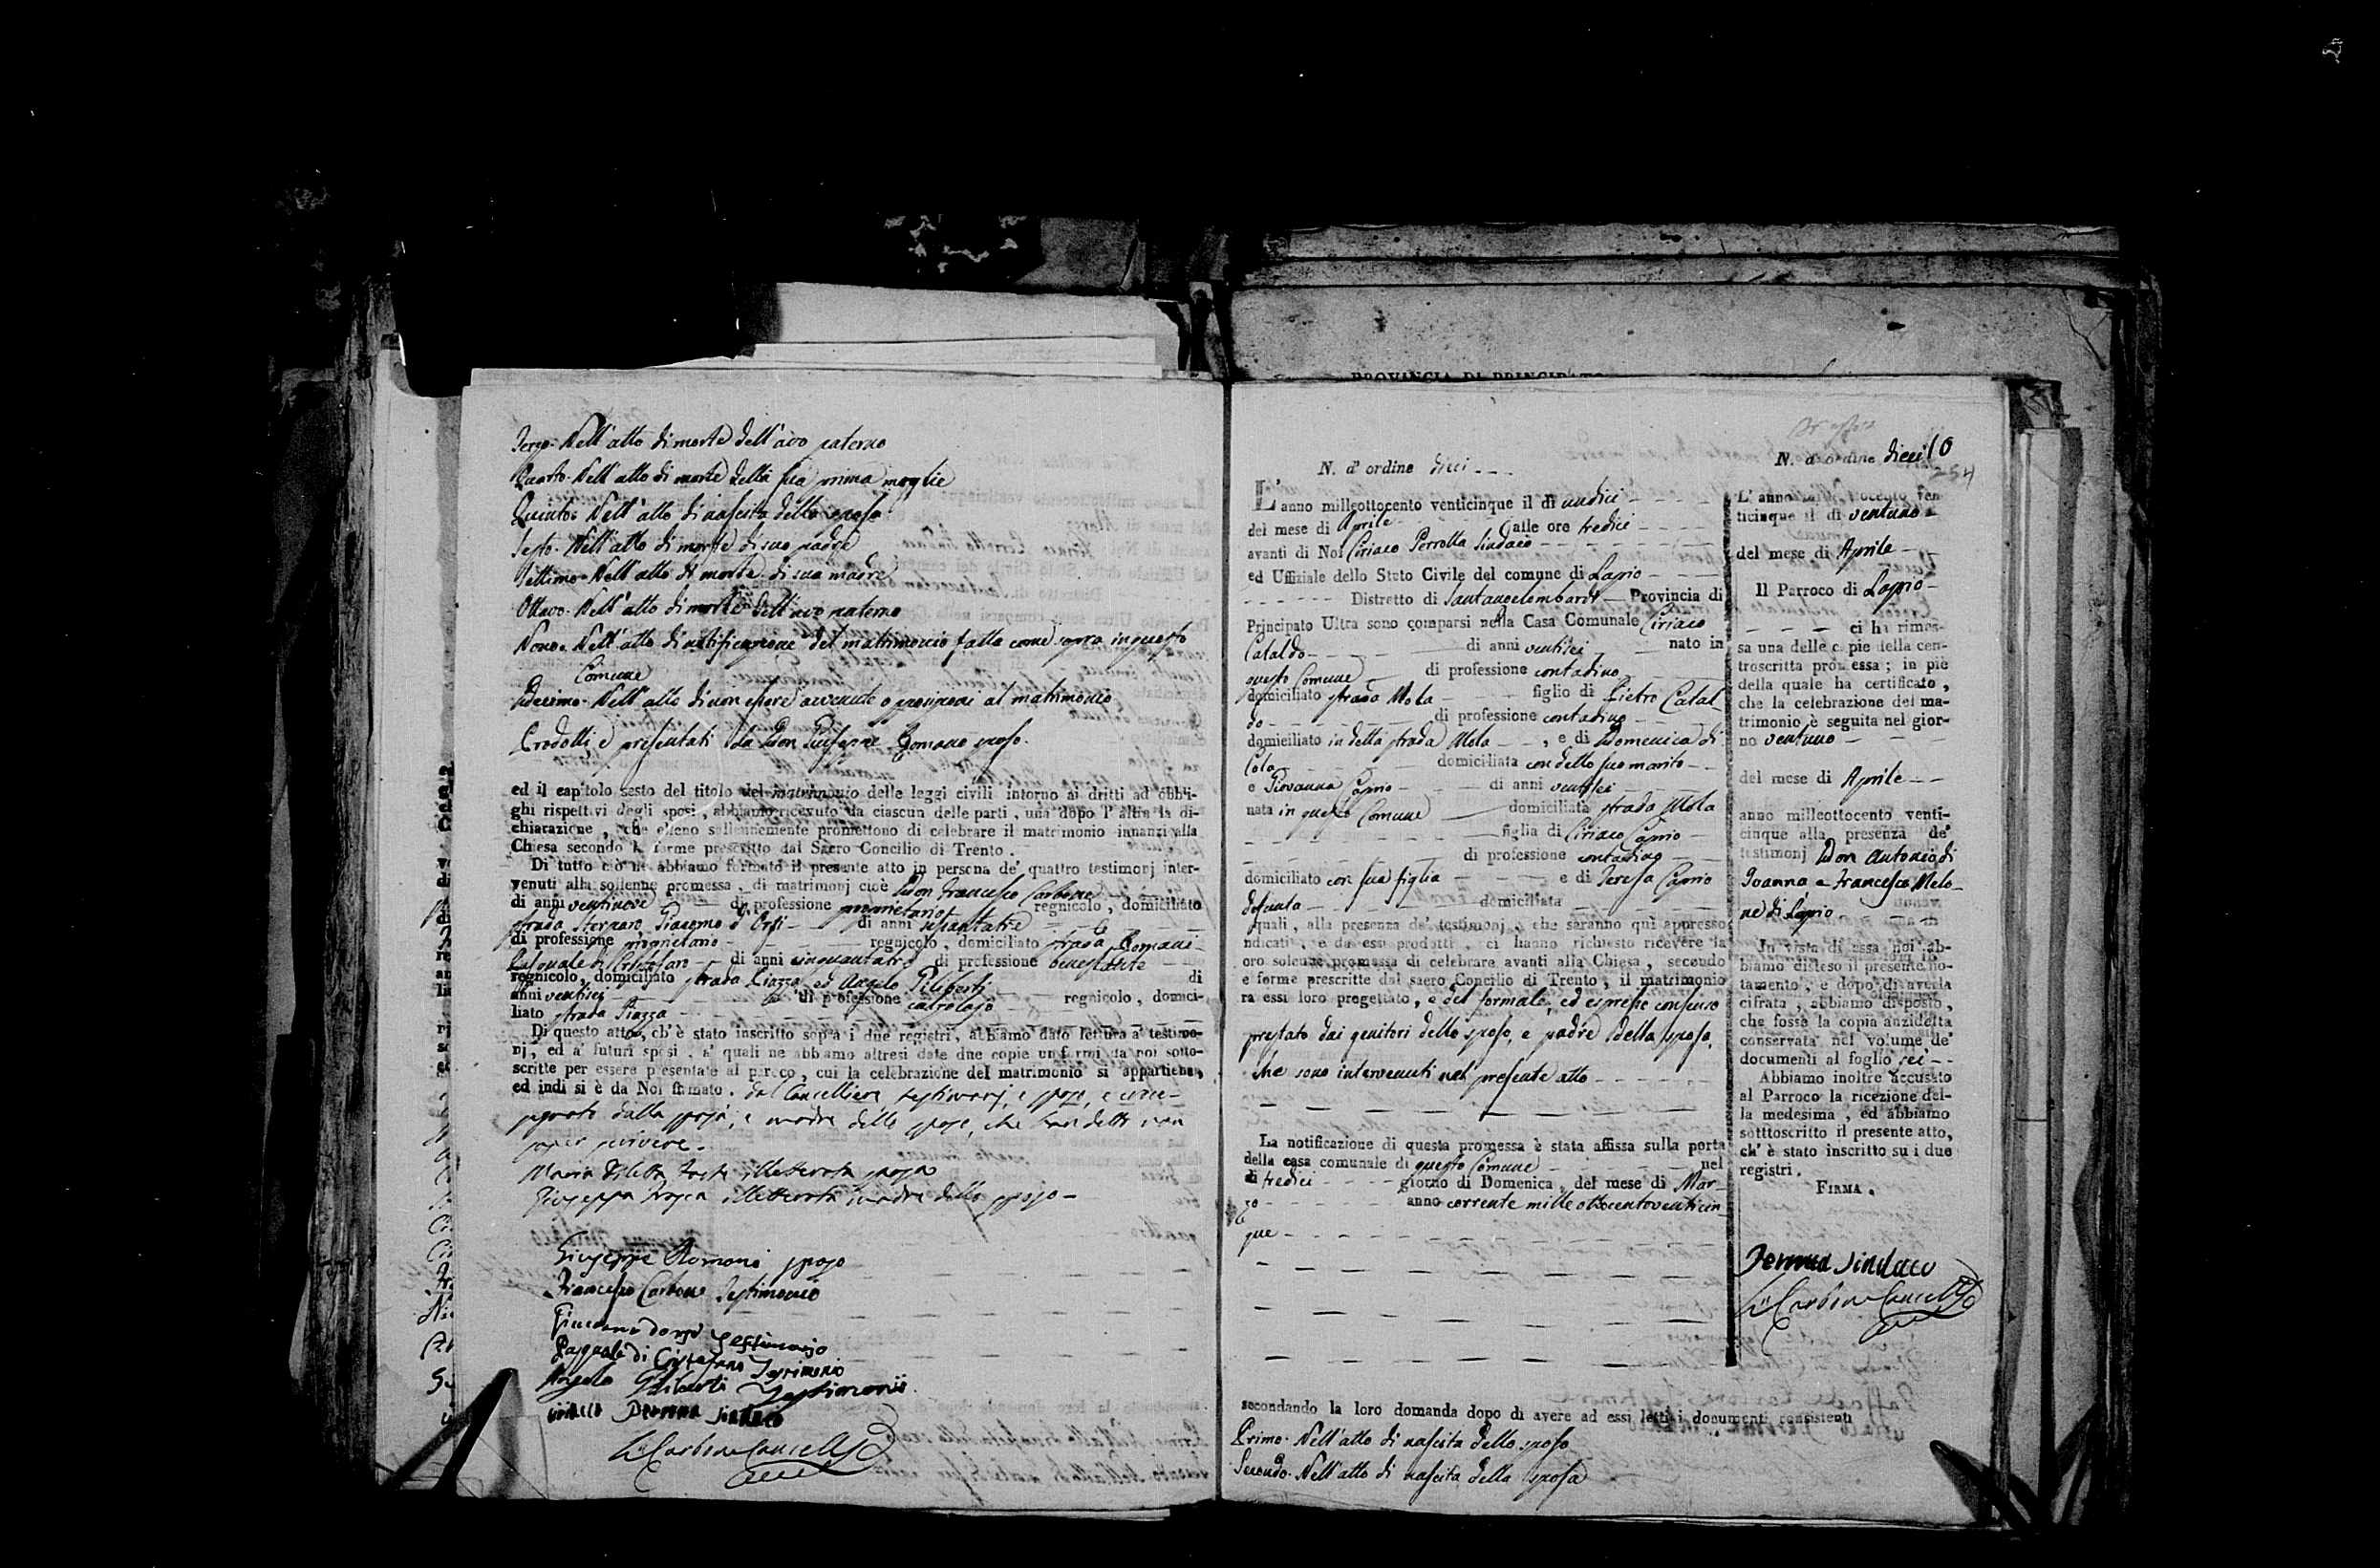 Terzo. Nell'atto di morte dell'avo paterno
Quarto. Nell'atto di morte della sua prima moglie
Quinto. Nell'atto di nascita della sposa
Sesto. Nell'atto di morte di suo padre
Settimo. Nell'atto di morte di sua madre
Ottavo. Nell'atto di morte dell'avo paterno
Nono. Nell'atto di notificazione del matrimonio fatta come sopra in questo
Comune
Decimo. Nell'atto di non essere avvenute opposizioni al matrimonio
Prodotti, e presentati da Don Giuseppe Romano sposo.
ed il capitolo sesto del titolo del matrimonio delle leggi civili intorno ai dritti ad obbli-
ghi rispettivi degli sposi, abbiamo ricevuto da ciascun delle parti, una dopo l'altra la di-
chiarazione, che elleno sollennemente promettono di celebrare il matrimonio innanzi alla
Chiesa secondo le forme prescritto dal Sacro Concilio di Trento.
Di tutto ciò ne abbiamo formato il presente atto in persona de' quattro testimonj inter-
venuti alla sollenne promessa, di matrimonj cioè Don Francesco Carbone
di anni ventinove di professione proprietario regnicolo, domiciliato
strada Giacomo d'Orsi di anni sessantatre
di professione proprietario regnicolo, domiciliato strada Romani
Pasquale di Cristofaro di anni cinquantatre di professione benestante
regnicolo, domiciliato strada Piazza ed Angelo Piliberti di
anni ventisei di professione calzolajo regnicolo, domici-
liato strada Piazza
Di questo atto, ch'è stato inscritto sopra i due registri, abbiamo dato lettura a' testimo-
nj, ed a' futuri sposi, a' quali ne abbiamo altresì date due copie uniformi da noi sotto-
scritte per essere presentate al parroco, cui la celebrazione del matrimonio si appartiene,
ed indi si è da Noi firmato. dal Cancelliere testimonj, e sposo, e croce-
segnato dalla sposa, e madre dello sposo, che han detto non
saper scrivere.
Maria testa illetterata sposa
Giuseppa illetterata madre dello sposo
Giuseppe Romano sposo
Francesco Carbone Testimonio
Giacomo dorsi testimonio
Pasquale di Cristofano Testimonio
Angelo Testimonio
Ciriaco Perrotta Sindaco
Carbone Cancell.
N. d'ordine dieci
L'anno milleottocento venticinque il dì undici
del mese di Aprile alle ore tredici
avanti di Noi Ciriaco Perrotta Sindaco
ed Uffiziale dello Stato Civile del comune di Lapio
Distretto di Santangelombardi Provincia di
Principato Ultra sono comparsi nella Casa Comunale Ciriaco
Cataldo di anni ventisei nato in
questo Comune di professione contadino
domiciliato strada Mola figlio di Pietro Catal
do di professione contadino
domiciliato in detta strada Mola, e di Domenica di
Cola domiciliata con detto suo marito
e Giovanna Caprio di anni ventisei
nata in questo Comune domiciliata strada Mola
figlia di Ciriaco Caprio
di professione contadino
domiciliato con sua figlia e di Teresa Caprio
defunta domiciliata
quali, alla presenza de' testimonj, che saranno quì appresso
ndicati, e da essi prodotti, ci hanno richiesto ricevere la
oro solenne promessa di celebrare avanti alla Chiesa, secondo
e forme prescritte dal sacro Concilio di Trento, il matrimonio
ra essi loro progettato, e del formale, ed espresso consenso
prestato dai genitori dello sposo, e padre della sposa,
che sono intervenuti nel presente atto
La notificazione di questa promessa è stata affissa sulla porta
della casa comunale di questo Comune nel
dì tredici giorno di Domenica, del mese di Mar-
zo anno corrente mille ottocentoventicin-
que
secondando la loro domanda dopo di avere ad essi letti i documenti consistenti
Primo. Nell'atto di nascita dello sposo
Secondo. Nell'atto di nascita della sposa
N. d'ordine dieci 10
254
L'anno milleottocento ven
ticinque il dì ventuno
del mese di Aprile
Il Parroco di Lapio
ci ha rimes-
sa una delle copie della con-
troscritta promessa; in piè
della quale ha certificato,
che la celebrazione del ma-
trimonio è seguita nel gior-
no ventuno
del mese di Aprile
anno milleottocento venti-
cinque alla presenza de'
testimonj Don Antonio di
Joanna e Francesco Melo-
ne di Lapio
In vista di essa noi ab-
biamo disteso il presente no-
tamento, e dopo di averla
cifrata, abbiamo disposto,
che fosse la copia anzidetta
conservata nel volume de'
documenti al foglio sei
Abbiamo inoltre accusato
al Parroco la ricezione del-
la medesima, ed abbiamo
sotttoscritto il presente atto,
ch'è stato inscritto su i due
registri.
FIRMA.
Perrotta Sindaco
Carbone Cancell.